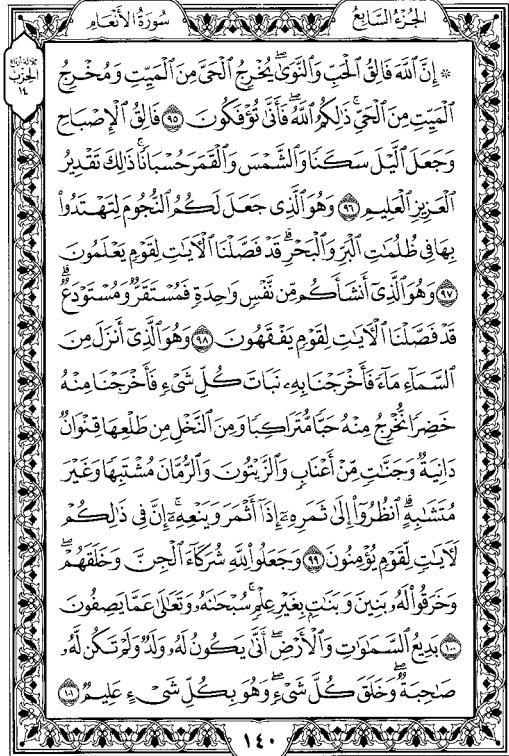 سُورَةُ الأَنْعَامِ
الجُزْءُ السَّابِعُ
الحِزْب
١٤
۞ إِنَّ ٱللَّهَ فَالِقُ ٱلْحَبِّ وَٱلنَّوَىٰۖ يُخْرِجُ ٱلْحَىَّ مِنَ ٱلْمَيِّتِ وَمُخْرِجُ
ٱلْمَيِّتِ مِنَ ٱلْحَىِّۚ ذَٰلِكُمُ ٱللَّهُۖ فَأَنَّىٰ تُؤْفَكُونَ ٩٥ فَالِقُ ٱلْإِصْبَاحِ
وَجَعَلَ ٱلَّيْلَ سَكَنًا وَٱلشَّمْسَ وَٱلْقَمَرَ حُسْبَانًاۚ ذَٰلِكَ تَقْدِيرُ
ٱلْعَزِيزِ ٱلْعَلِيمِ ٩٦ وَهُوَ ٱلَّذِى جَعَلَ لَكُمُ ٱلنُّجُومَ لِتَهْتَدُوا۟
بِهَا فِى ظُلُمَٰتِ ٱلْبَرِّ وَٱلْبَحْرِۗ قَدْ فَصَّلْنَا ٱلْـَٔايَٰتِ لِقَوْمٍ يَعْلَمُونَ
٩٧ وَهُوَ ٱلَّذِىٓ أَنشَأَكُم مِّن نَّفْسٍ وَٰحِدَةٍ فَمُسْتَقَرٌّ وَمُسْتَوْدَعٌۗ
قَدْ فَصَّلْنَا ٱلْـَٔايَٰتِ لِقَوْمٍ يَفْقَهُونَ ٩٨ وَهُوَ ٱلَّذِىٓ أَنزَلَ مِنَ
ٱلسَّمَآءِ مَآءً فَأَخْرَجْنَا بِهِۦ نَبَاتَ كُلِّ شَىْءٍ فَأَخْرَجْنَا مِنْهُ
خَضِرًا نُّخْرِجُ مِنْهُ حَبًّا مُّتَرَاكِبًا وَمِنَ ٱلنَّخْلِ مِن طَلْعِهَا قِنْوَانٌ
دَانِيَةٌ وَجَنَّٰتٍ مِّنْ أَعْنَابٍ وَٱلزَّيْتُونَ وَٱلرُّمَّانَ مُشْتَبِهًا وَغَيْرَ
مُتَشَٰبِهٍۗ ٱنظُرُوٓا۟ إِلَىٰ ثَمَرِهِۦٓ إِذَآ أَثْمَرَ وَيَنْعِهِۦٓۚ إِنَّ فِى ذَٰلِكُمْ
لَـَٔايَٰتٍ لِّقَوْمٍ يُؤْمِنُونَ ٩٩ وَجَعَلُوا۟ لِلَّهِ شُرَكَآءَ ٱلْجِنَّ وَخَلَقَهُمْۖ
وَخَرَقُوا۟ لَهُۥ بَنِينَ وَبَنَٰتٍۭ بِغَيْرِ عِلْمٍۚ سُبْحَٰنَهُۥ وَتَعَٰلَىٰ عَمَّا يَصِفُونَ
١٠٠ بَدِيعُ ٱلسَّمَٰوَٰتِ وَٱلْأَرْضِۖ أَنَّىٰ يَكُونُ لَهُۥ وَلَدٌ وَلَمْ تَكُن لَّهُۥ
صَٰحِبَةٌۖ وَخَلَقَ كُلَّ شَىْءٍۖ وَهُوَ بِكُلِّ شَىْءٍ عَلِيمٌ ١٠١
١٤٠